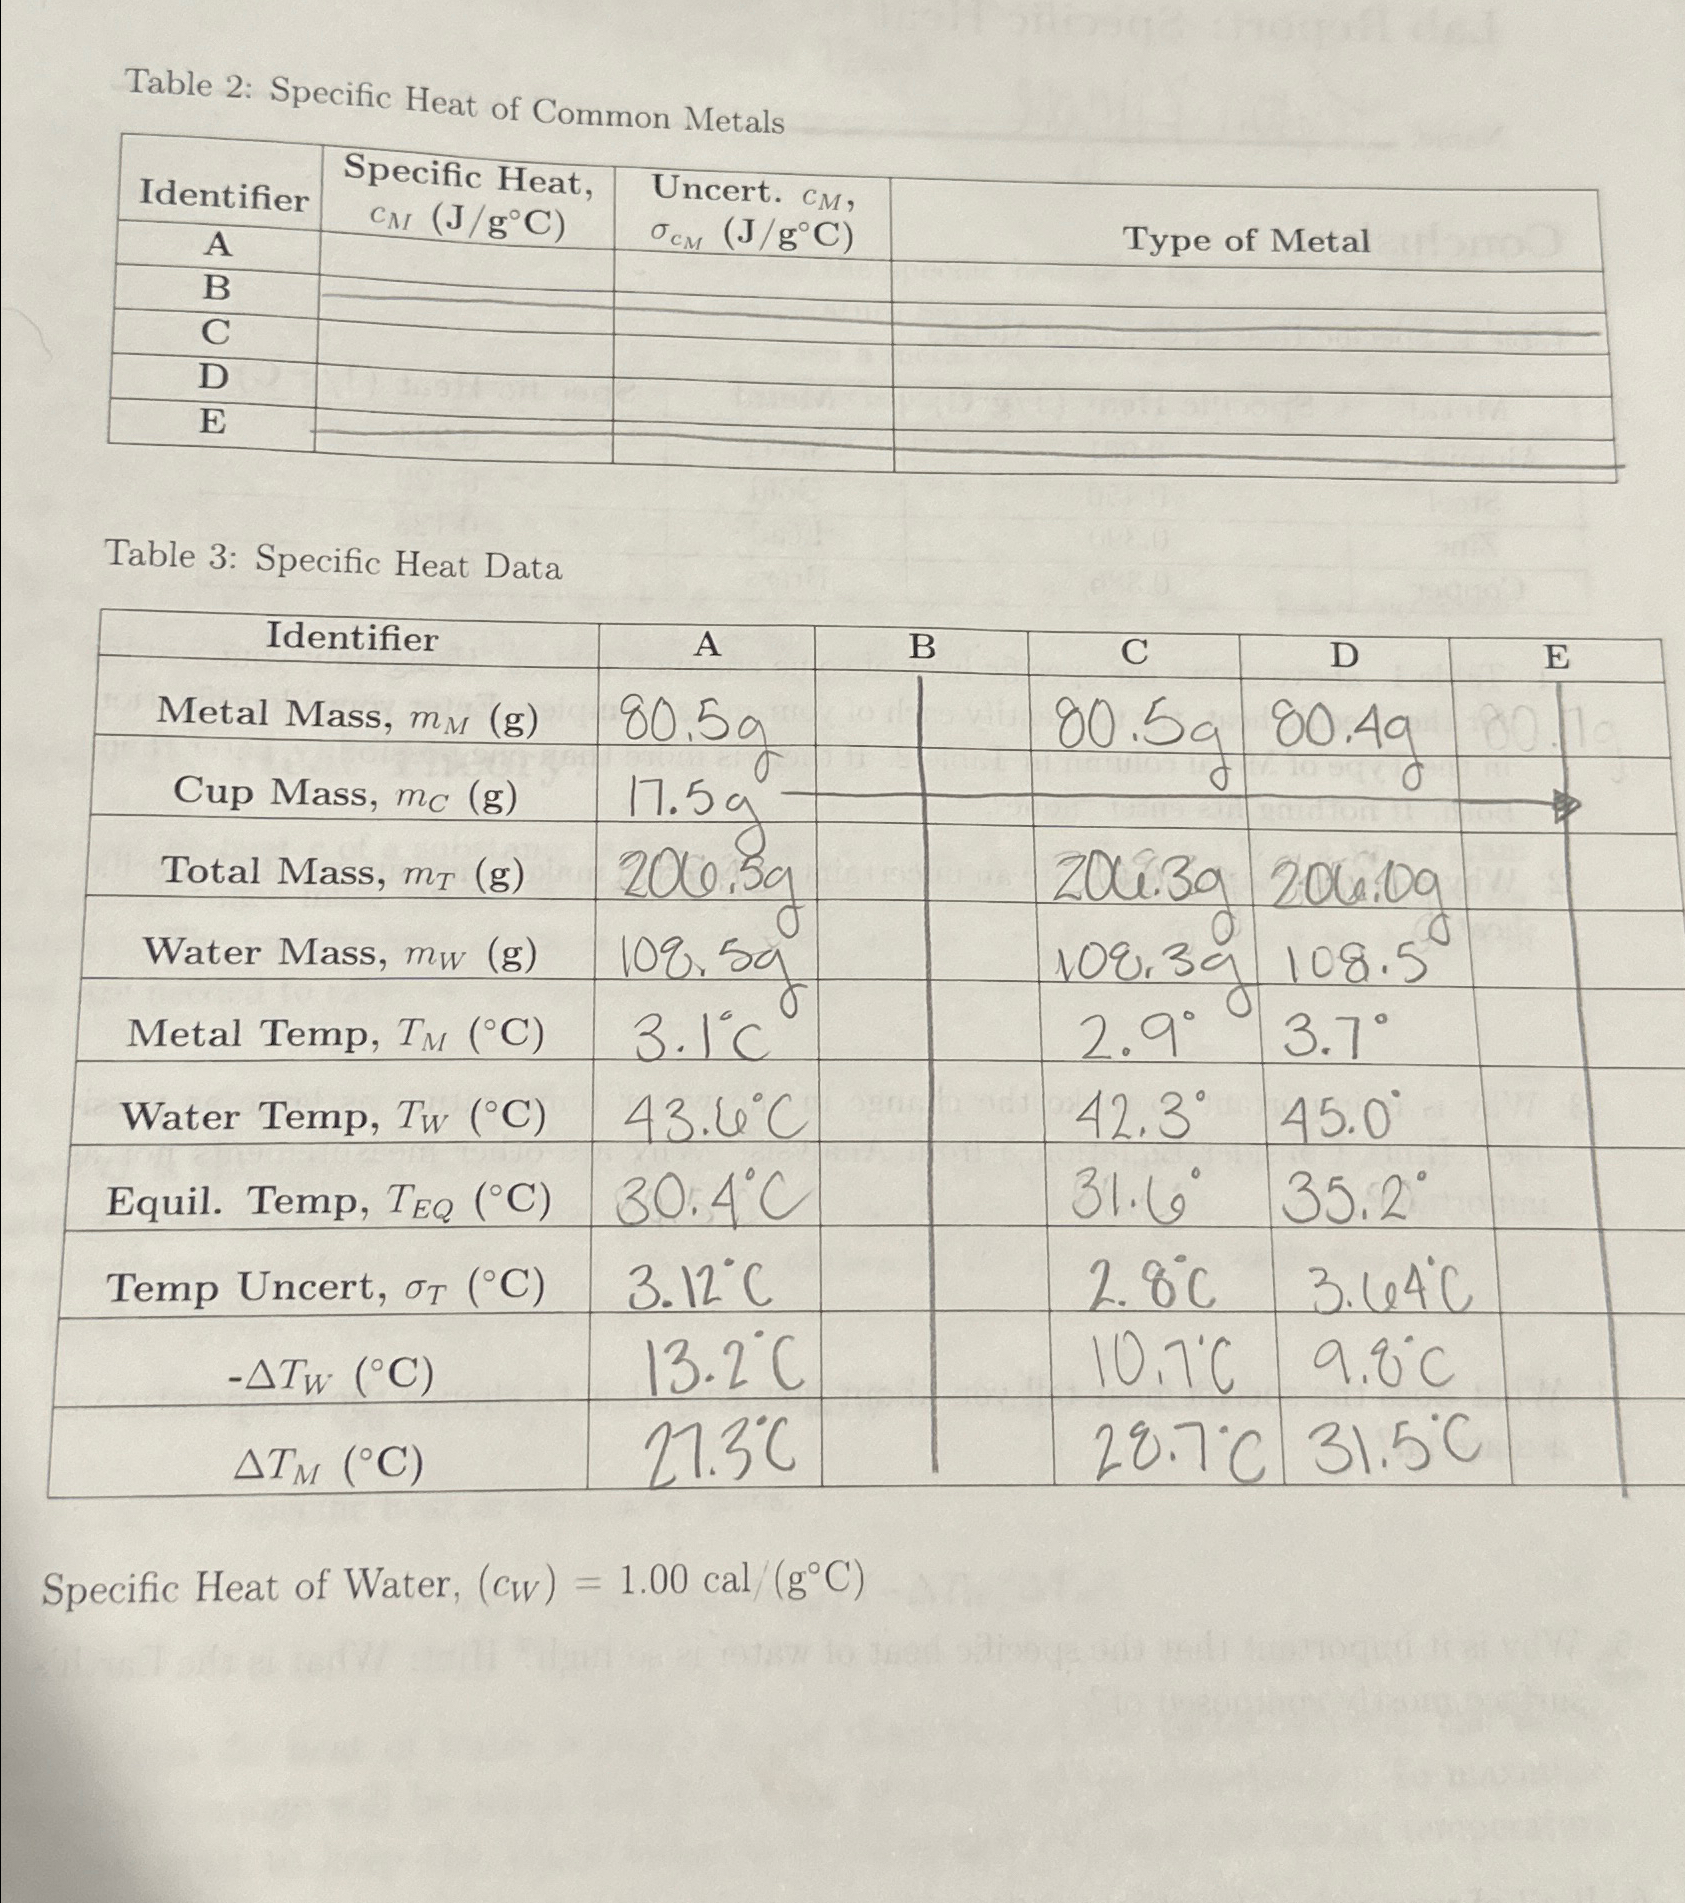 Table 2: Specific Heat of Common Metals
Identifier Specific Heat, cM (J/g°C) Uncert. cM, σcM (J/g°C) Type of Metal
A
B
C
D
E
Table 3: Specific Heat Data
Identifier A B C D E
Metal Mass, mM (g) 80.5g 80.5g 80.4g
Cup Mass, mC (g) 17.5g
Total Mass, mT (g) 206.5g 206.3g 206.0g
Water Mass, mW (g) 108.5g 108.3g 108.5
Metal Temp, TM (°C) 3.1°C 2.9° 3.7°
Water Temp, TW (°C) 43.6°C 42.3° 45.0°
Equil. Temp, TEQ (°C) 30.4°C 31.6° 35.2°
Temp Uncert, σT (°C) 3.12°C 2.8°C 3.64°C
-ΔTW (°C) 13.2°C 10.7°C 9.8°C
ΔTM (°C) 27.3°C 28.7°C 31.5°C
Specific Heat of Water, (cW) = 1.00 cal/(g°C)